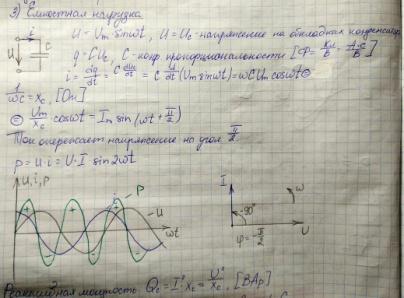 3) Емкостная нагрузка
U = Uₘ·sinωt, U = Uc - напряжение на обкладках конденсатора
i
U
C
q = CUc, C - коэф. пропорциональности [Ф = Кл/В = А·с/В]
i = dq/dt = C duc/dt = C d/dt (Uₘ sinωt) = ωCUₘ cosωt ⊜
1/ωC = xc, [Ом]
⊜ Uₘ/xc cosωt = Iₘ sin(ωt + π/2)
Ток опережает напряжение на угол π/2
p = u·i = U·I sin2ωt
U,i,p
i
P
U
ωt
+ - + - +
I
ω
-90°
φ = -π/2
U
Реактивная мощность Qc = I²·xc = U²/xc, [ВАр]